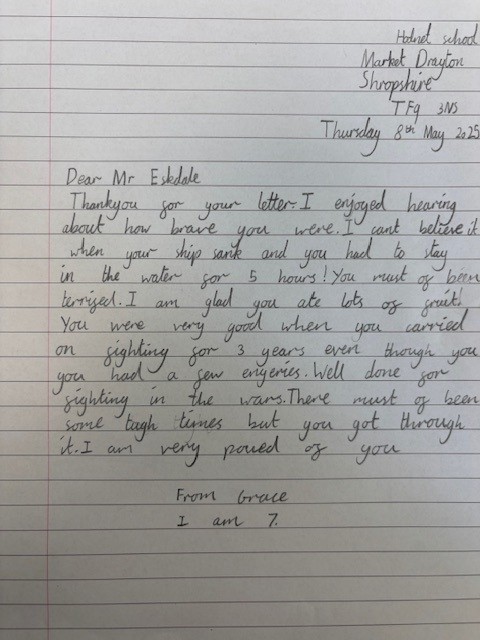 Hodnet school
Market Drayton
Shropshire
TF9 3NS
Thursday 8th May 2025
Dear Mr Eskdale
Thankyou for your letter. I enjoyed hearing
about how brave you were. I cant believe it
when your ship sank and you had to stay
in the water for 5 hours! You must of been
terrified. I am glad you ate lots of fruit!
You were very good when you carried
on fighting for 3 years even though you
you had a few engeries. Well done for
fighting in the wars. There must of been
some tagh times but you got through
it. I am very poued of you
From Grace
I am 7.